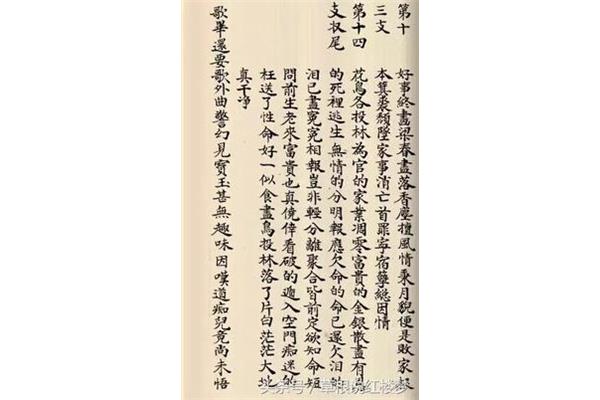 第十 好事終畫梁春盡落香塵擅風情秉月貌便是敗家根
三支 本箕裘頹墮家事消亡首罪寧宿孽總因情
第十四 花鳥各投林為官的家業凋零富貴的金銀散盡有
支收尾 的死裡逃生無情的分明報應欠命的命已還欠泪的
泪已盡寃寃相報豈非輕分離聚合皆前定欲知命短
問前生老來富貴也真僥倖看破的遁入空門痴迷的
枉送了性命好一似食盡鳥投林落了片白茫茫大地
真干净
歌畢還要歌外曲警幻見寶玉甚無趣味因嘆道痴兒竟尚未悟
头条号/草根说红楼梦